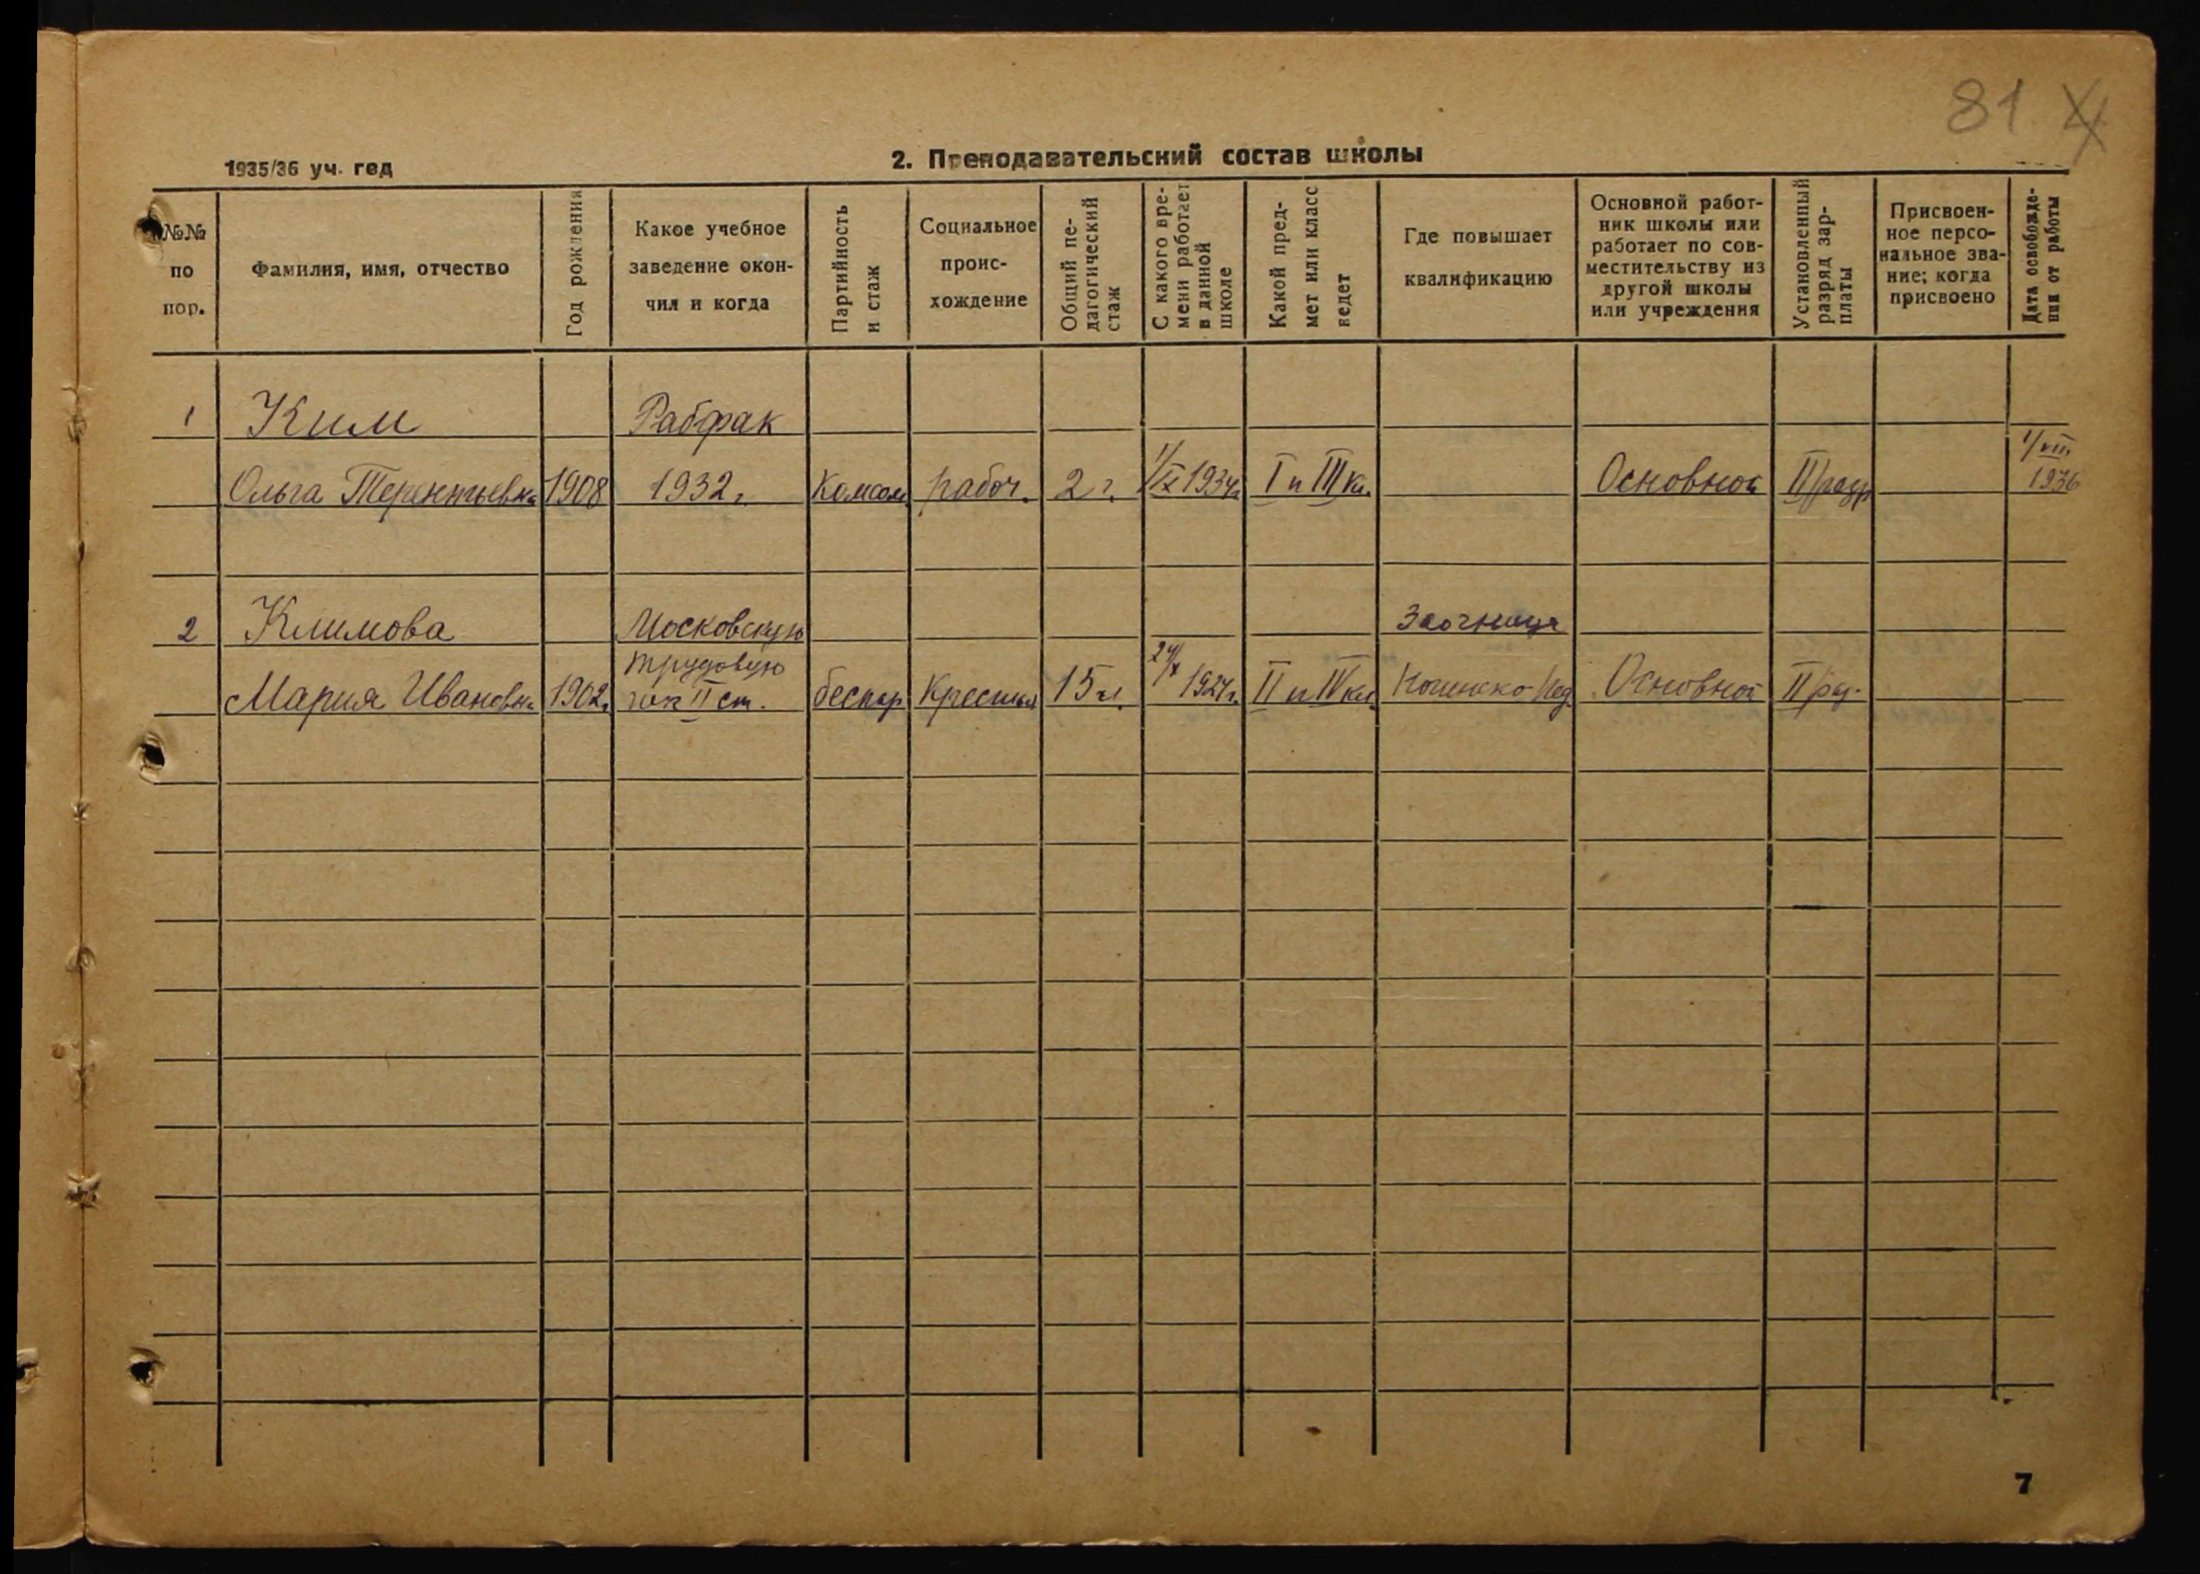 81
1935/36 уч. год
2. Преподавательский состав школы
№№ по пор.
Фамилия, имя, отчество
Год рождения
Какое учебное заведение окончил и когда
Партийность и стаж
Социальное происхождение
Общий педагогический стаж
С какого времени работает в данной школе
Какой предмет или класс ведет
Где повышает квалификацию
Основной работник школы или работает по совместительству из другой школы или учреждения
Установленный разряд зарплаты
Присвоенное персональное звание; когда присвоено
Дата освобождения от работы
1 Ким Рабфак
Ольга Терентьевна 1908 1932г. Комсом. рабоч. 2 г. 1/IX 1934г. I и III кл. Основной II разр 1/VIII 1936
2 Климова Московскую Заочница
трудовую
Мария Ивановна 1902г. II ст. беспар Крестья 15 л. 24/X 1924г. II и IV кл. Пед. Основной II раз.
7